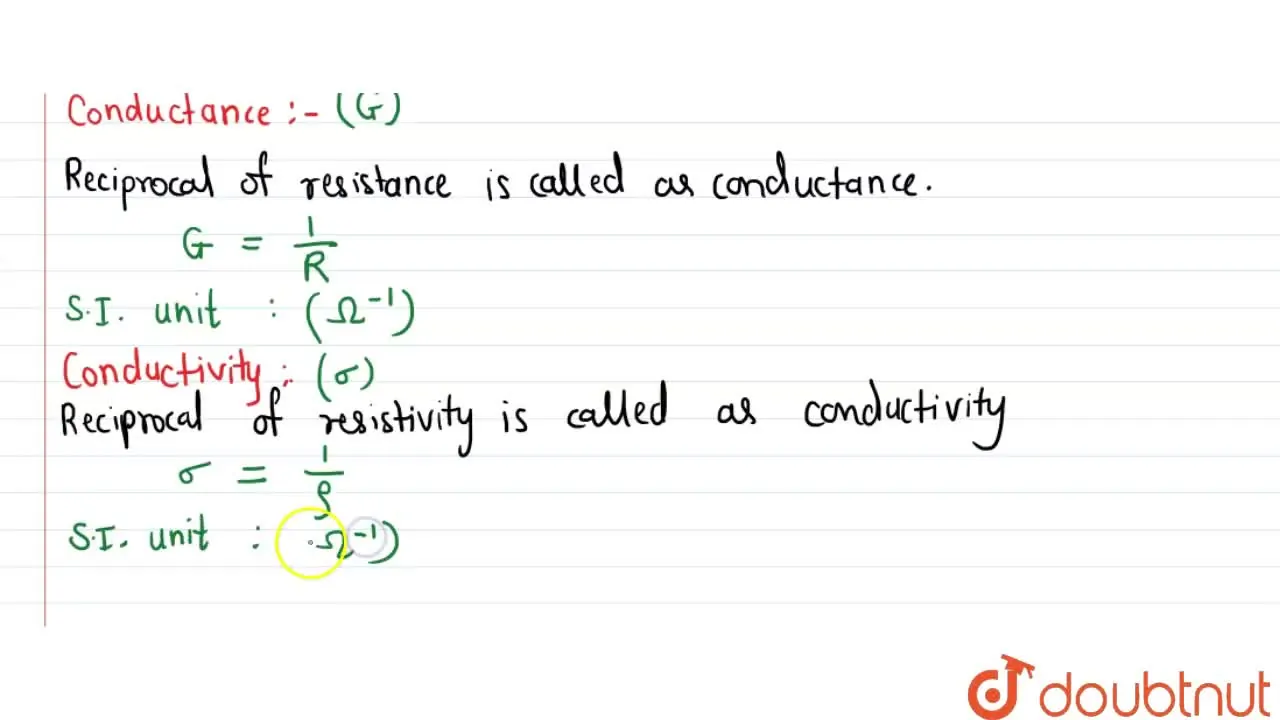 Conductance :- (G)
Reciprocal of resistance is called as conductance.
G = 1/R
S.I. unit : (Ω⁻¹)
Conductivity :. (σ)
Reciprocal of resistivity is called as conductivity
σ = 1/ρ
S.I. unit : Ω⁻¹)
doubtnut